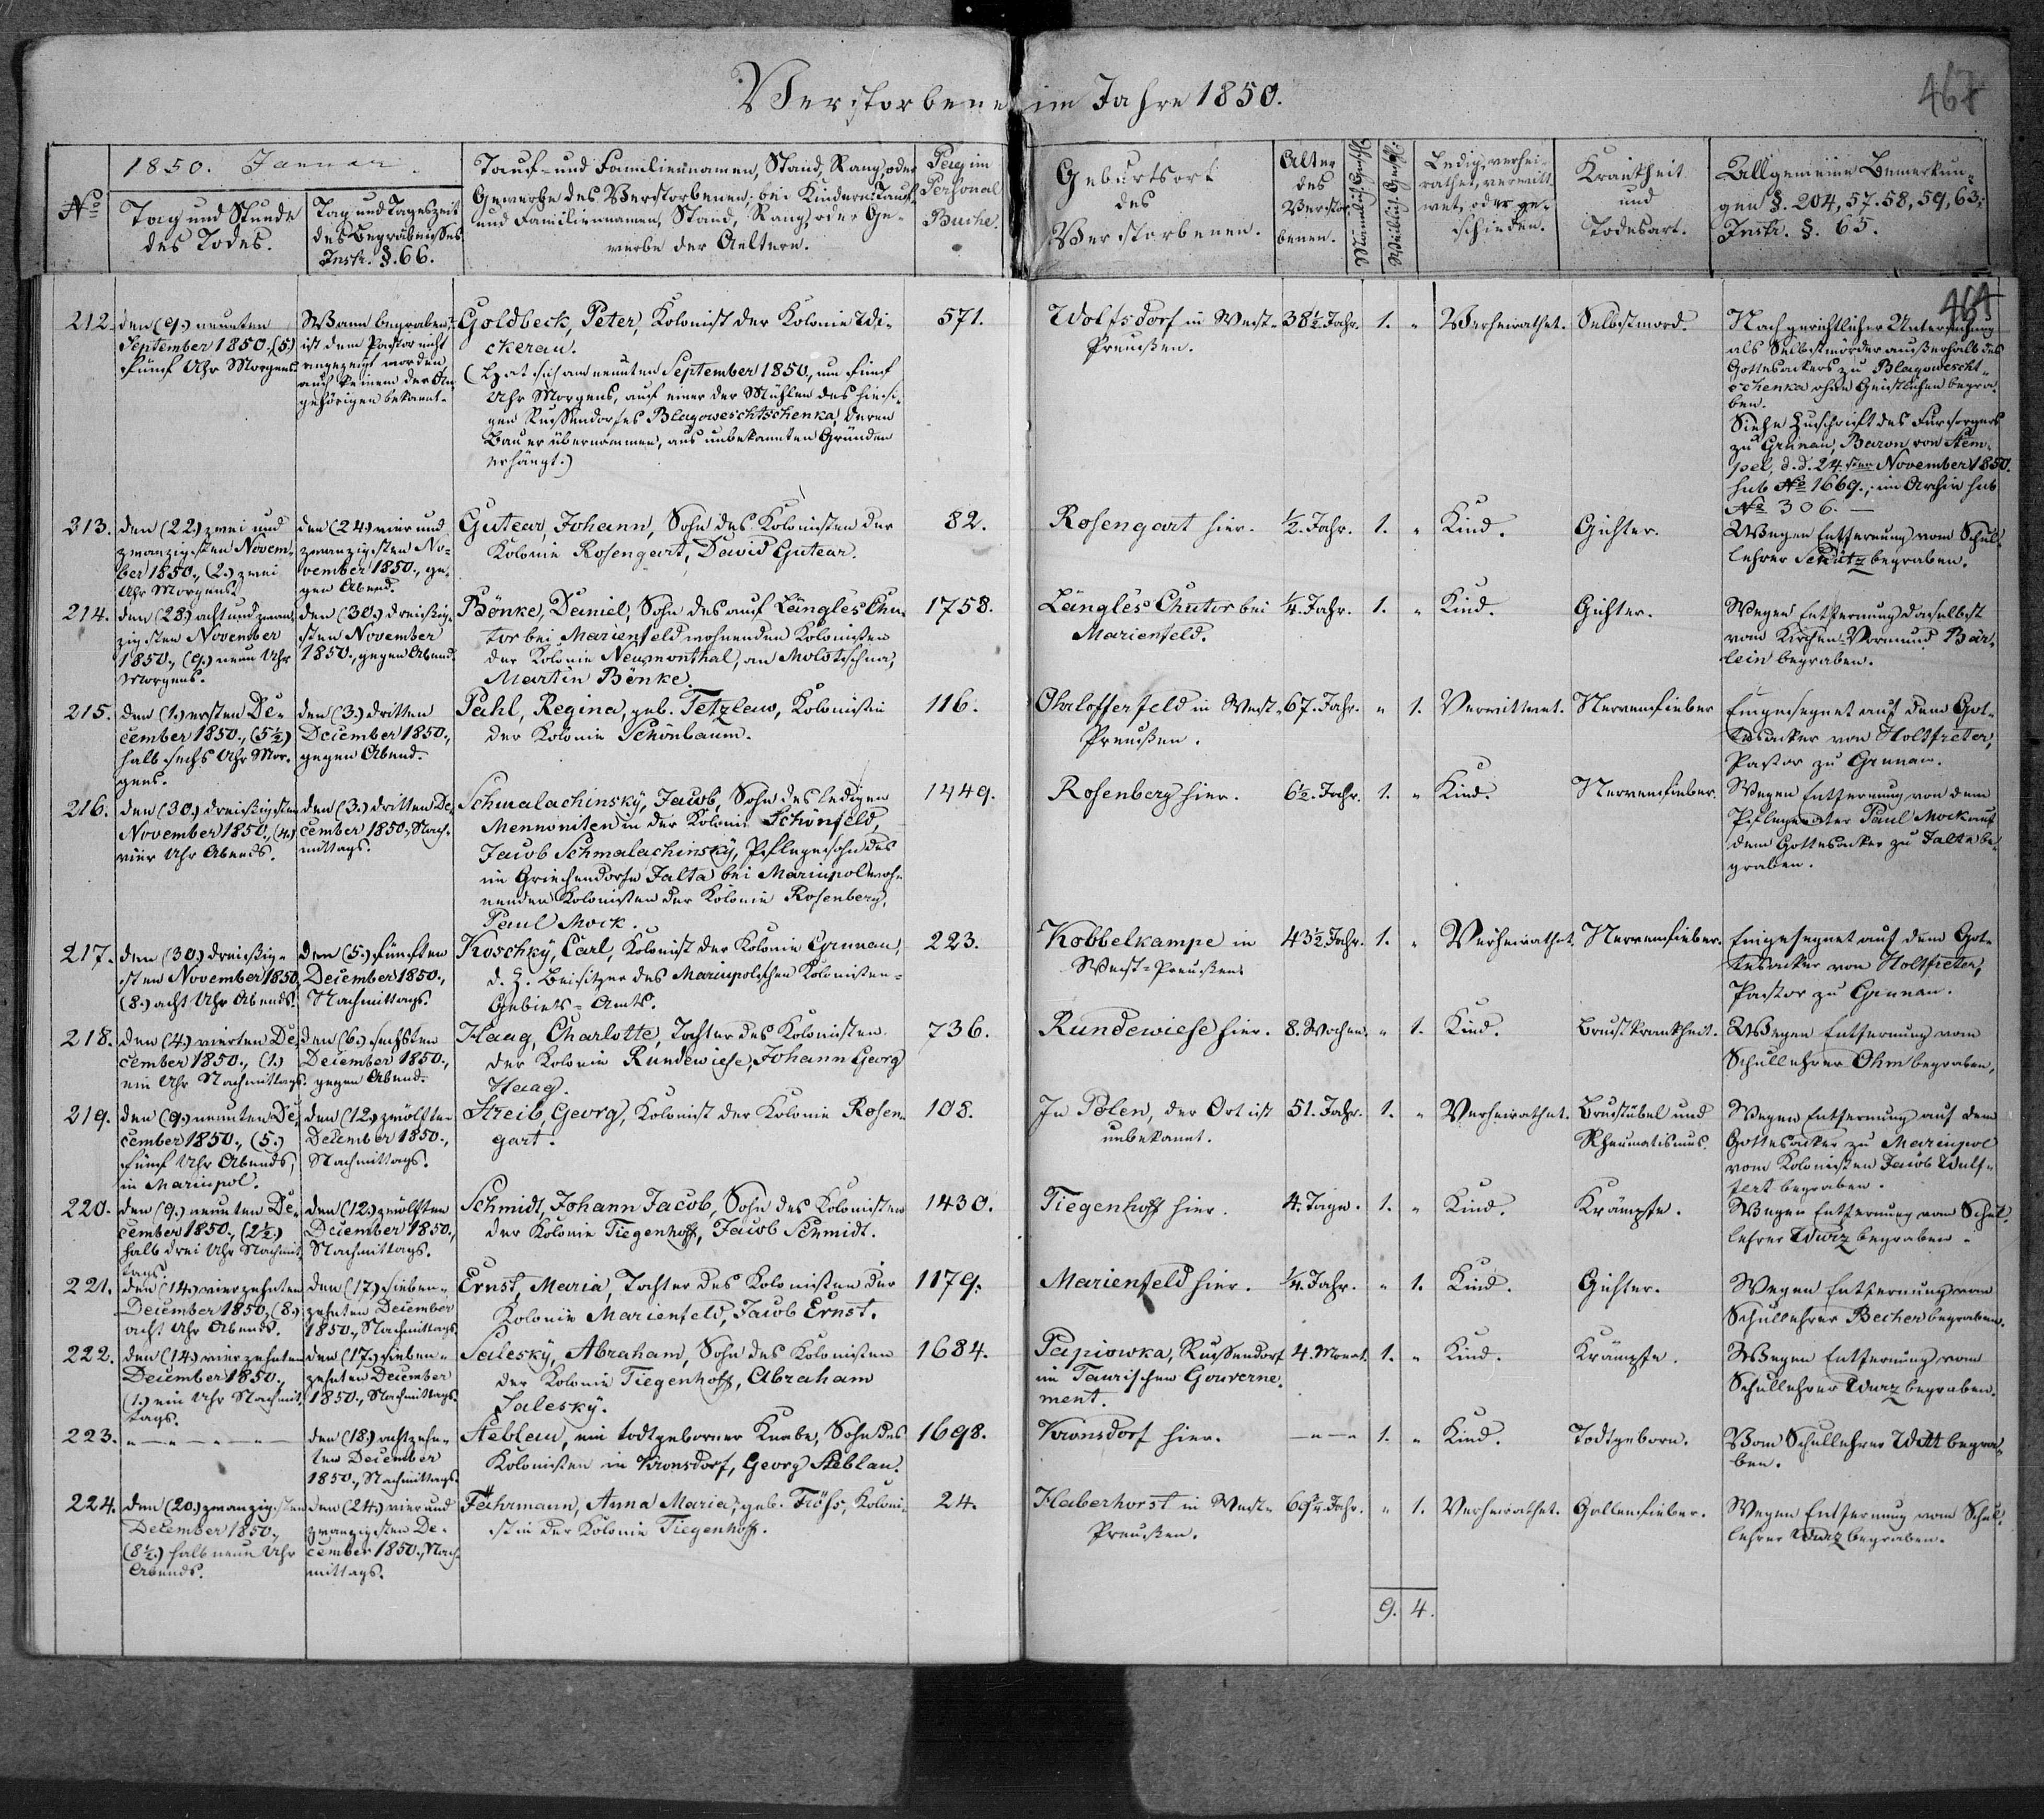 Verstorbene im Jahre 1850.
467
No
1850. Januar.
Tag und Stunde
des Todes.
Tag und Tageszeit
des Begräbnisses
Instr. §. 66.
Tauf- und Familiennamen, Stand, Rang, oder
Gewerbe des Verstorbenen; bei Kindern: Tauf-
und Familiennamen, Stand, Rang, oder Ge-
werbe der Aeltern.
Pag im
Personal
Buche.
Geburtsort
des
Verstorbenen.
Alter
des
Verstor-
benen.
Männlich. Geschl.
Weiblich. Geschl.
Ledig, verhei-
rathet, verwitt-
wet, oder ge-
schieden.
Krankheit
und
Todesart.
Allgemeine Bemerkun-
gen §. 204, 57. 58, 59, 63;
Instr. §. 65.
464
212.
den (9.) neunten
September 1850., (5.)
fünf Uhr Morgens
Wann begraben,
ist dem Pastor nicht
angezeigt worden
auch keinem der An-
gehörigen bekannt.
Goldbeck, Peter, Kolonist der Kolonie Wi-
ckerau.
(Hat sich am neunten September 1850., um fünf
Uhr Morgens, auf einer der Mühlen des hiesi-
gen Russendorfes Blagoweschtschenka, deren
Bau er übernommen, aus unbekannten Gründen
erhängt.)
571.
Wolfsdorf in West-
Preußen.
38½. Jahr.
1.
"
Verheirathet.
Selbstmord.
Nach gerichtlicher Untersuchung
als Selbstmörder außerhalb des
Gottesackers zu Blagowescht-
schenka ohne Geistlichen begra-
ben.
Siehe Zuschrift des Fürsorgers
zu Grunau, Baron von Stem-
pel, d. d. 24. sten November 1850.
sub No 1669., im Archiv sub
No 306. —
213.
den (22.) zwei und
zwanzigsten Novem-
ber 1850., (2.) zwei
Uhr Morgens.
den (24.) vier und
zwanzigsten No-
vember 1850., ge-
gen Abend.
Gutear, Johann, Sohn des Kolonisten der
Kolonie Rosengart, David Gutear.
82.
Rosengart hier.
½. Jahr.
1.
"
Kind.
Gichter.
Wegen Entfernung vom Schul-
lehrer Schütz begraben.
214.
den (28.) acht und zwan-
zigsten November
1850., (9.) neun Uhr
Morgens.
den (30.) dreißig-
sten November
1850., gegen Abend.
Bönke, Daniel, Sohn des auf Länglès Chu-
tor bei Marienfeld wohnenden Kolonisten
der Kolonie Neumonthal, an Molotschna,
Martin Bönke.
1758.
Länglès Chutor bei
Marienfeld.
¼. Jahr.
1.
"
Kind.
Gichter.
Wegen Entfernung daselbst
vom Kirchen-Vormund Bär-
lein begraben.
215.
den (1.) ersten De-
cember 1850., (5½)
halb sechs Uhr Mor-
gens.
den (3.) dritten
December 1850.,
gegen Abend.
Pahl, Regina, geb. Tetzlaw, Kolonistin
der Kolonie Schönbaum.
116.
Ohrlofferfeld in West-
Preußen.
67. Jahr.
"
1.
Verwittwet.
Nervenfieber
Eingesegnet auf dem Got-
tesacker von Holtfreter,
Pastor zu Grunau.
216.
den (30.) dreißigsten
November 1850., (4.)
vier Uhr Abends.
den (3.) dritten De-
cember 1850., Nach-
mittags.
Schmalachinsky, Jacob, Sohn des ledigen
Mennoniten in der Kolonie Schönfeld,
Jacob Schmalachinsky, Pflegesohn des
im Griechendorfe Jalta bei Mariupol woh-
nenden Kolonisten der Kolonie Rosenberg,
Paul Mock.
1449.
Rosenberg hier.
6½. Jahr.
1.
"
Kind.
Nervenfieber.
Wegen Entfernung von dem
Pflegevater Paul Mock auf
dem Gottesacker zu Jalta be-
graben.
217.
den (30.) dreißig-
sten November 1850
(8.) acht Uhr Abends.
den (5.) fünften
December 1850.,
Nachmittags.
Koschky, Carl, Kolonist der Kolonie Grunau,
d. Z. Beisitzer des Mariupolschen Kolonisten-
Gebiets-Amts.
223.
Kobbelkampe in
West-Preußen.
43½. Jahr.
1.
"
Verheirathet.
Nervenfieber.
Eingesegnet auf dem Got-
tesacker von Holtfreter,
Pastor zu Grunau.
218.
den (4.) vierten De-
cember 1850., (1.)
ein Uhr Nachmittags.
den (6.) sechsten
December 1850.,
gegen Abend.
Haag, Charlotte, Tochter des Kolonisten
der Kolonie Rundewiese, Johann Georg
Haag.
736.
Rundewiese hier.
8. Wochen.
"
1.
Kind.
Brustkrankheit.
Wegen Entfernung vom
Schullehrer Ohm begraben.
219.
den (9.) neunten De-
cember 1850., (5.)
fünf Uhr Abends,
in Mariupol.
den (12.) zwölften
December 1850.,
Nachmittags.
Streib, Georg, Kolonist der Kolonie Rosen-
gart.
108.
In Polen, der Ort ist
unbekannt.
51. Jahr.
1.
"
Verheirathet.
Brustübel und
Rheumatismus.
Wegen Entfernung auf dem
Gottesacker zu Mariupol
vom Kolonisten Jacob Wulf-
fert begraben.
220.
den (9.) neunten De-
cember 1850., (2½.)
halb drei Uhr Nachmit-
tags.
den (12.) zwölften
December 1850.,
Nachmittags.
Schmidt, Johann Jacob, Sohn des Kolonisten
der Kolonie Tiegenhoff, Jacob Schmidt.
1430.
Tiegenhoff hier.
4. Tage.
1.
"
Kind.
Krämpfe.
Wegen Entfernung vom Schul-
lehrer Wurz begraben.
221.
den (14.) vierzehnten
December 1850., (8.)
acht Uhr Abends.
den (17.) sieben-
zehnten December
1850., Nachmittags.
Ernst, Maria, Tochter des Kolonisten der
Kolonie Marienfeld, Jacob Ernst.
1179.
Marienfeld hier.
¼. Jahr.
"
1.
Kind.
Gichter.
Wegen Entfernung vom
Schullehrer Becher begraben.
222.
den (14.) vierzehnten
December 1850.,
(1.) ein Uhr Nachmit-
tags.
den (17.) sieben-
zehnten December
1850., Nachmittags.
Salesky, Abraham, Sohn des Kolonisten
der Kolonie Tiegenhoff, Abraham
Salesky.
1684.
Papiowka, Russendorf
im Taurischen Gouverne-
ment.
4. Monat.
1.
"
Kind.
Krämpfe.
Wegen Entfernung vom
Schullehrer Wurz begraben.
223.
" — " — " — " —
den (18.) achtzehn-
ten December
1850., Nachmittags.
Steblau, ein todtgeborner Knabe, Sohn des
Kolonisten in Kronsdorf, Georg Steblau.
1698.
Kronsdorf hier.
— " — "
1.
"
Kind.
Todtgeboren.
Vom Schullehrer Witt begra-
ben.
224.
den (20.) zwanzigsten
December 1850.,
(8½.) halb neun Uhr
Abends.
den (24.) vier und
zwanzigsten De-
cember 1850., Nach-
mittags.
Fährmann, Anna Maria, geb. Fröhs, Koloni-
stin der Kolonie Tiegenhoff.
24.
Haberhorst in West-
Preußen.
69¾. Jahr.
"
1.
Verheirathet.
Gallenfieber.
Wegen Entfernung vom Schul-
lehrer Wurz begraben.
9. 4.